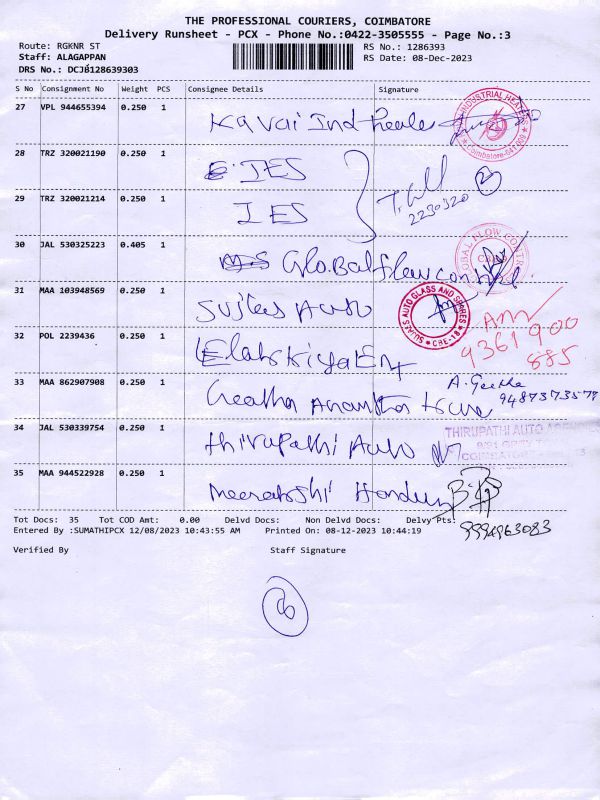 THE PROFESSIONAL COURIERS, COIMBATORE
Delivery Runsheet - PCX - Phone No.:0422-3505555 - Page No.:3
Route: RGKNR ST
RS No.: 1286393
Staff: ALAGAPPAN
RS Date: 08-Dec-2023
DRS No.: DCJB128639303
S No Consignment No Weight PCS Consignee Details Signature
27 VPL 944655394 0.250 1 Kavai Ind
INDUSTRIAL
Coimbatore-641 009
28 TRZ 320021190 0.250 1 IES
29 TRZ 320021214 0.250 1 IES
2230320
30 JAL 530325223 0.405 1 Global flow control
GLOBAL FLOW CONTR
31 MAA 103948569 0.250 1 Sujies Auto
AUTO GLASS AND SPARES
CBE-18
32 POL 2239436 0.250 1
9361900
885
33 MAA 862907908 0.250 1 Geetha
A. Geetha
9487373577
34 JAL 530339754 0.250 1 thirupathi Auto
THIRUPATHI AUTO AGENCIES
COIMBATORE
35 MAA 944522928 0.250 1 Meenakshi
9994963083
Tot Docs: 35 Tot COD Amt: 0.00 Delvd Docs: Non Delvd Docs: Delvy Pts:
Entered By :SUMATHIPCX 12/08/2023 10:43:55 AM Printed On: 08-12-2023 10:44:19
Verified By Staff Signature